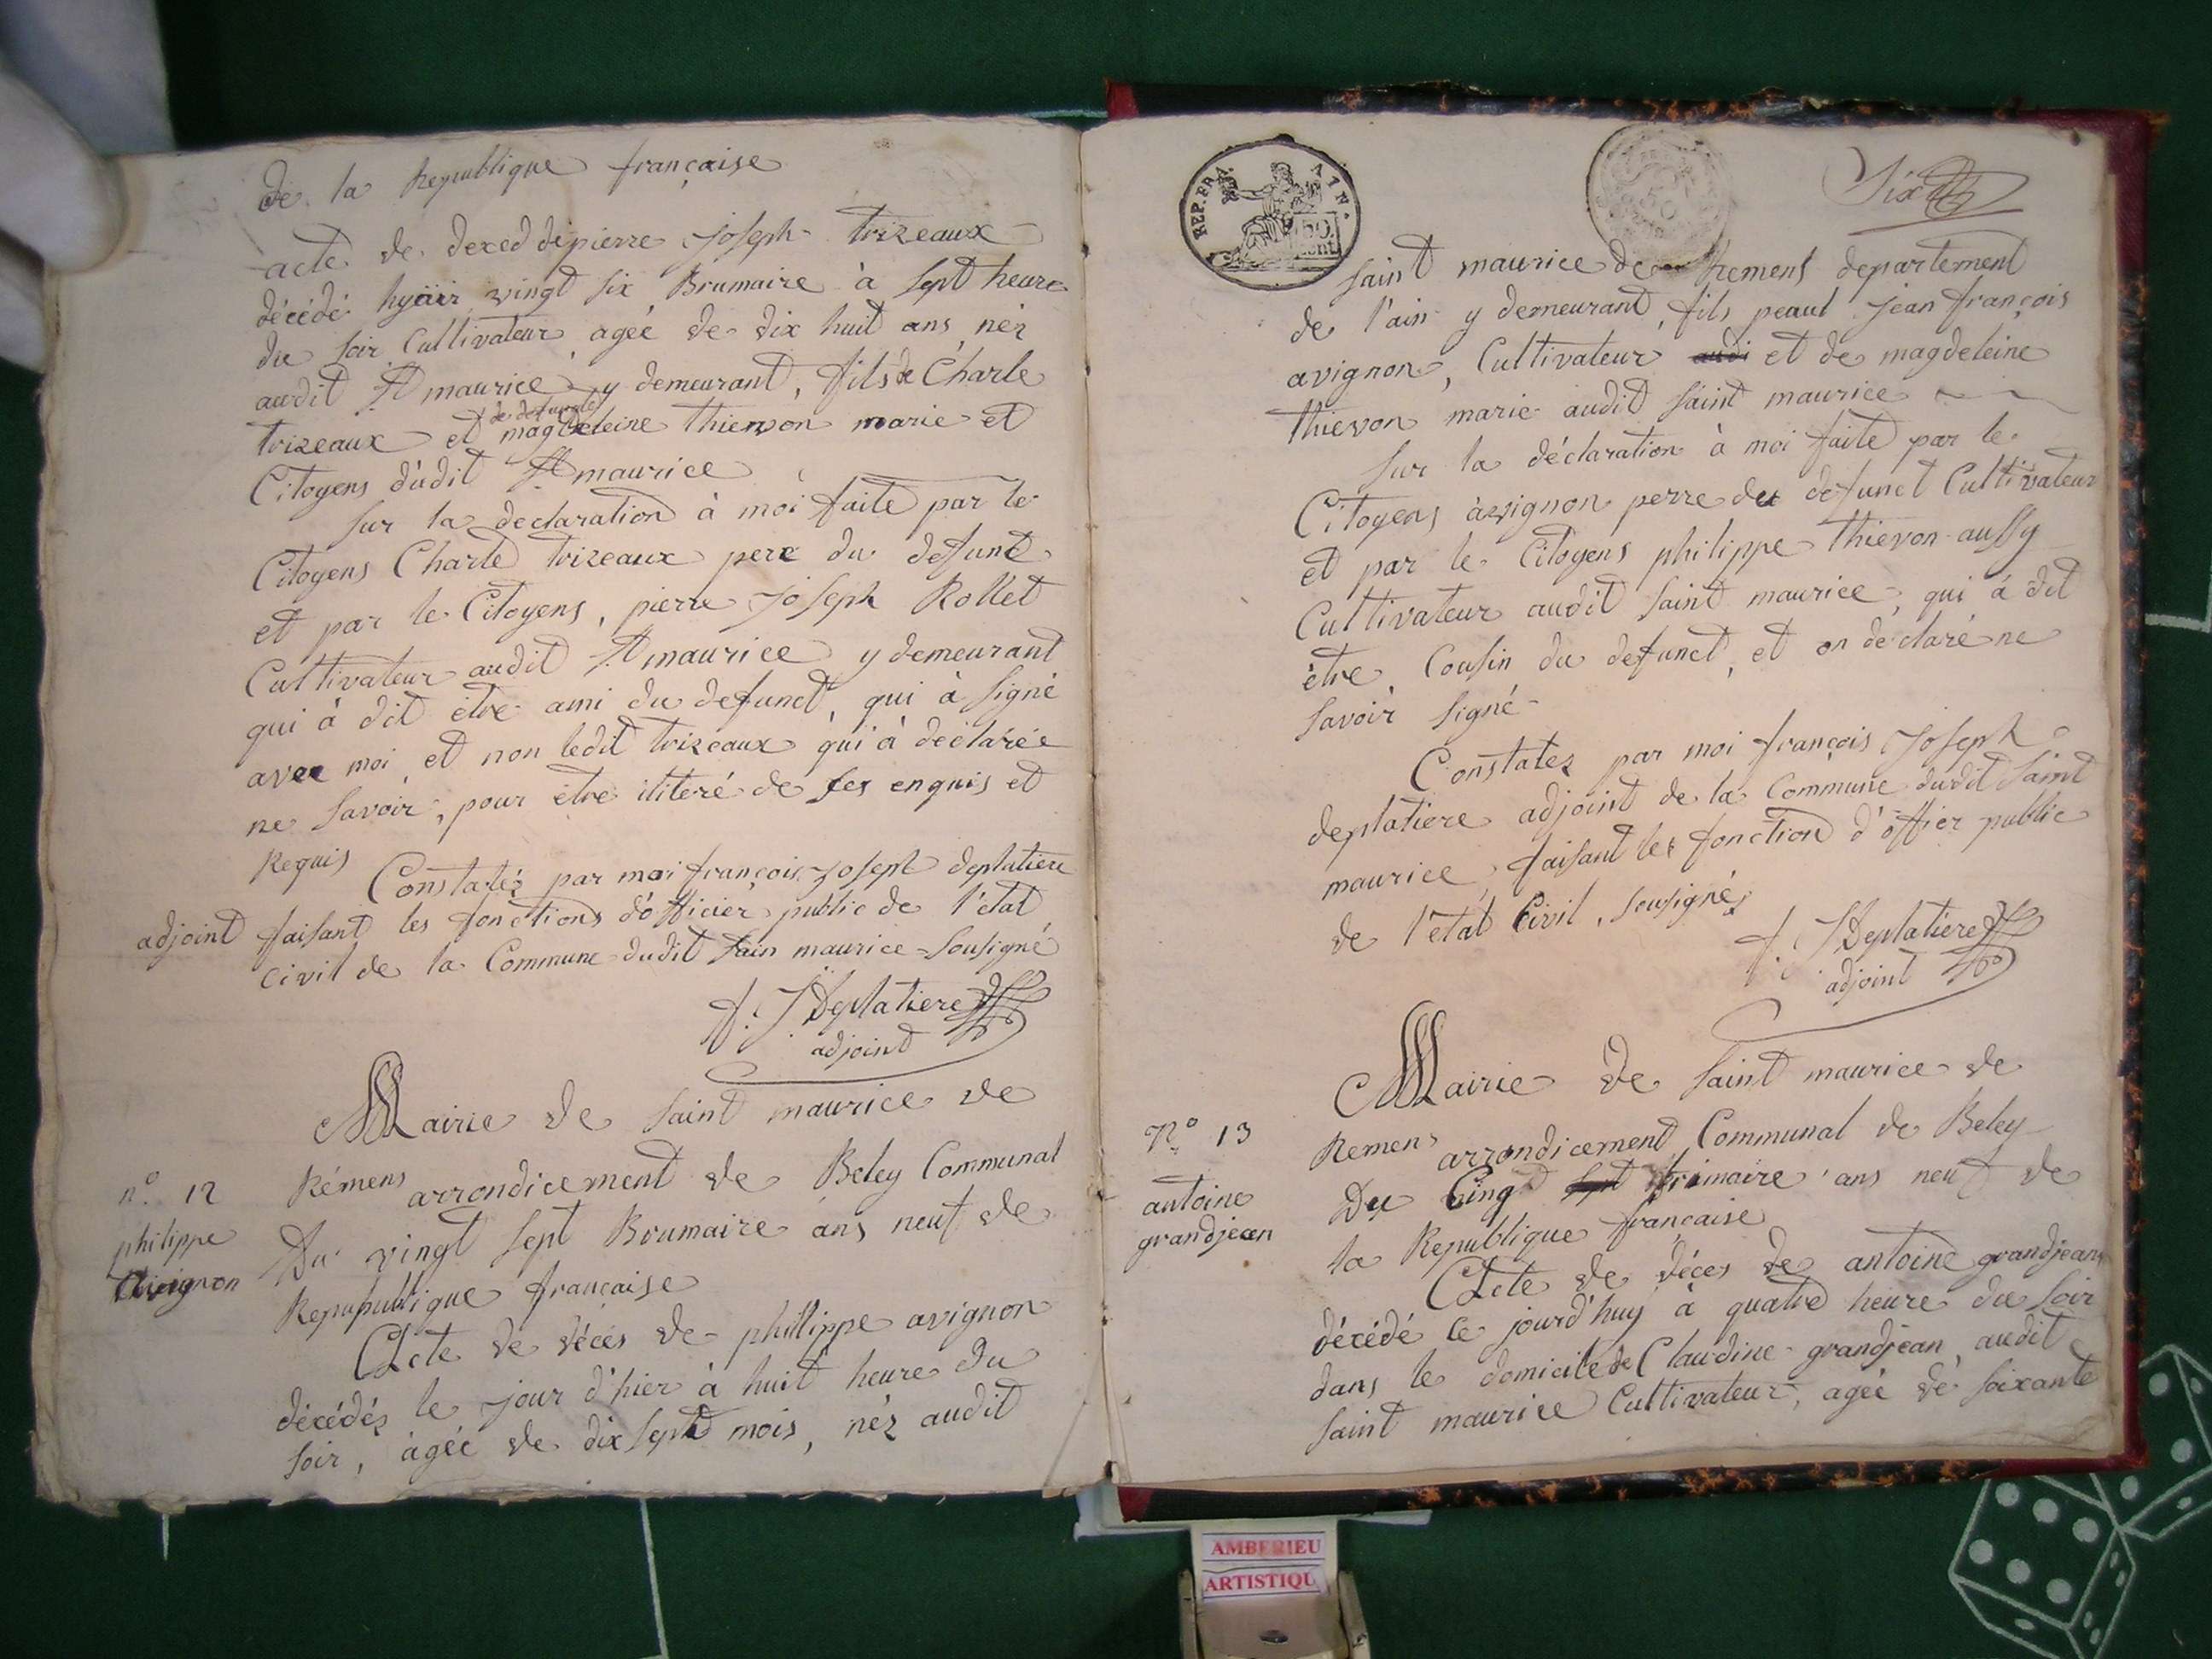 de la Republique française
acte de deced de pierre Joseph trizeaux
décédé hyair vingt six Brumaire à sept heure
du soir Cultivateur, agée de dix huit ans néz
audit St maurice y demeurant, fils de Charle
de defuncte
trizeaux et magdeleine thievon marie et
Citoyens düdit St maurice
sur la declaration à moi faite par le
Citoyens Charle trizeaux pere du defunt
et par le Citoyens, pierre Joseph Rollet
Cultivateur audit St maurice y demeurant
qui à dit être ami du defunct, qui à signé
avec moi, et non ledit trizeaux qui à déclarée
ne savoir, pour être iliteré de ses enquis et
Requis
Constatéz par moi françois Joseph deplatiere
adjoint faisant les fonctions d'officier public de l'état
civil de la Commune dudit sain maurice sousigné
f. J Deplatiere
adjoint
Mairie de saint maurice de
n.° 12
philippe
avignon
Rémens arrondicement de Beley Communal
Du vingt sept Brumaire ans neuf de
Repupublique française
Acte de décés de philippe avignon
décédéz le jour d'hier à huit heure du
soir, àgée de dix sept mois, néz audit
REP. FRA. AIN.
50
cent
50
Six
saint maurice de Remens departement
de l'ain y demeurant, fils peaul Jean françois
avignon, Cultivateur audi et de magdeleine
thievon marie audit saint maurice
sur la déclaration à moi faite par le
Citoyens àvignon perre du defunct Cultivateur
et par le Citoyens philippe thievon aussy
Cultivateur audit saint maurice, qui à dit
être Cousin du defunct, et on déclaré ne
savoir signé
Constatez par moi françois Joseph
deplatiere adjoint de la Commune dudit saint
maurice, faisant les fonction d'offier public
de l'etat Civil, sousigné
f. J Deplatiere
adjoint
Mairie de saint maurice de
N.° 13
antoine
grandjean
Remens arrondicement Communal de Beley
Du Cinq sept frimaire ans neuf de
la Republique française
Acte de déces de antoine grandjean
décédé le jourd'huy à quatre heure du soir
dans le domicile de Claudine grandjean audit
saint maurice Cultivateur, agée de soixante
AMBERIEU
ARTISTIQU